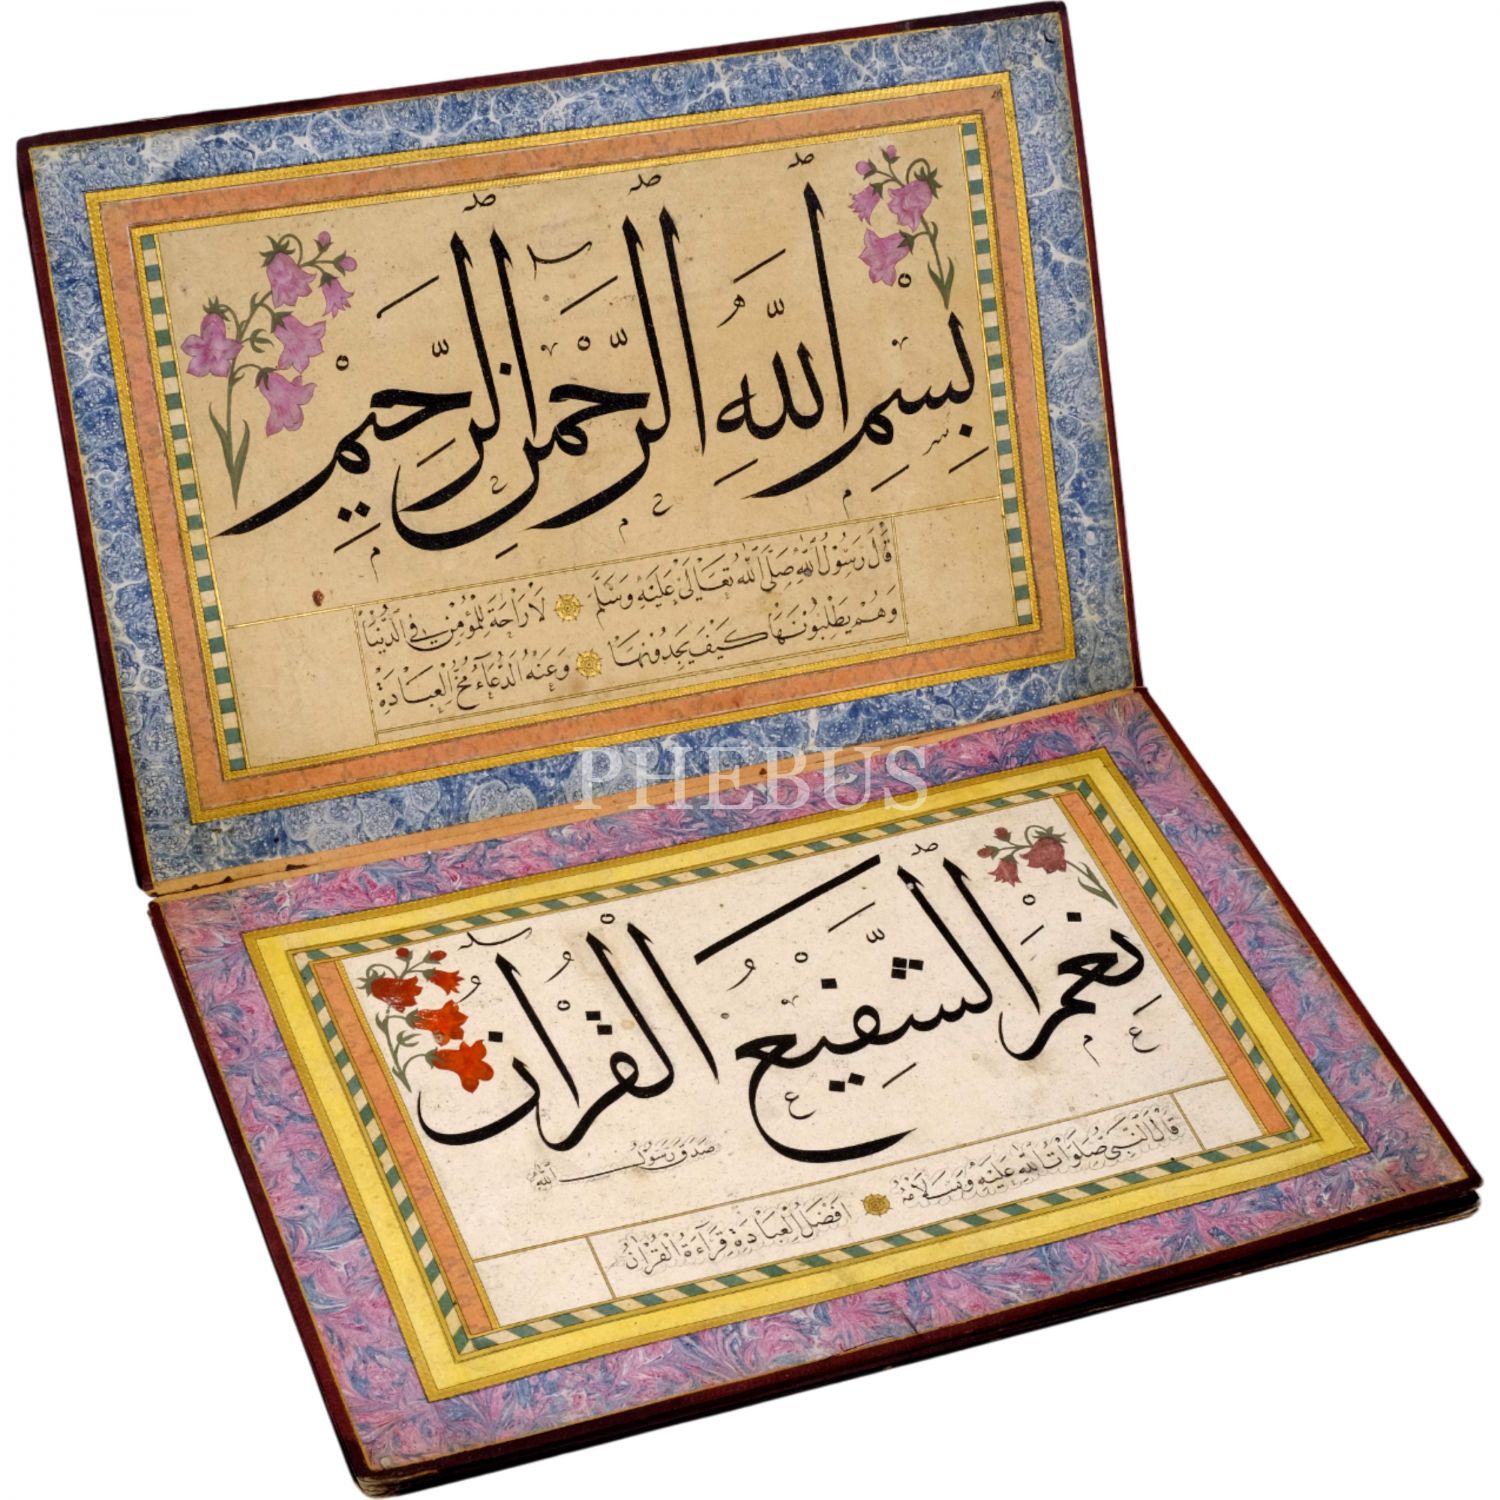 بِسْمِ اللّٰهِ الرَّحْمٰنِ الرَّحِيْمِ
قَالَ رَسُوْلُ اللّٰهِ صَلَّى اللّٰهُ تَعَالٰى عَلَيْهِ وَسَلَّمَ لَا رَاحَةَ لِلْمُؤْمِنِ فِي الدُّنْيَا
وَهُمْ يَطْلُبُوْنَهَا كَيْفَ يَجِدُوْنَهَا وَعَنْهُ الدُّعَاءُ مُخُّ الْعِبَادَةِ
PHEBUS
نِعْمَ الشَّفِيْعُ الْقُرْاٰنُ
صَدَقَ رَسُوْلُ اللّٰه
قَالَ النَّبِيُّ صَلَوَاتُ اللّٰهِ عَلَيْهِ وَسَلَامُهُ اَفْضَلُ الْعِبَادَةِ قِرَاءَةُ الْقُرْاٰنِ